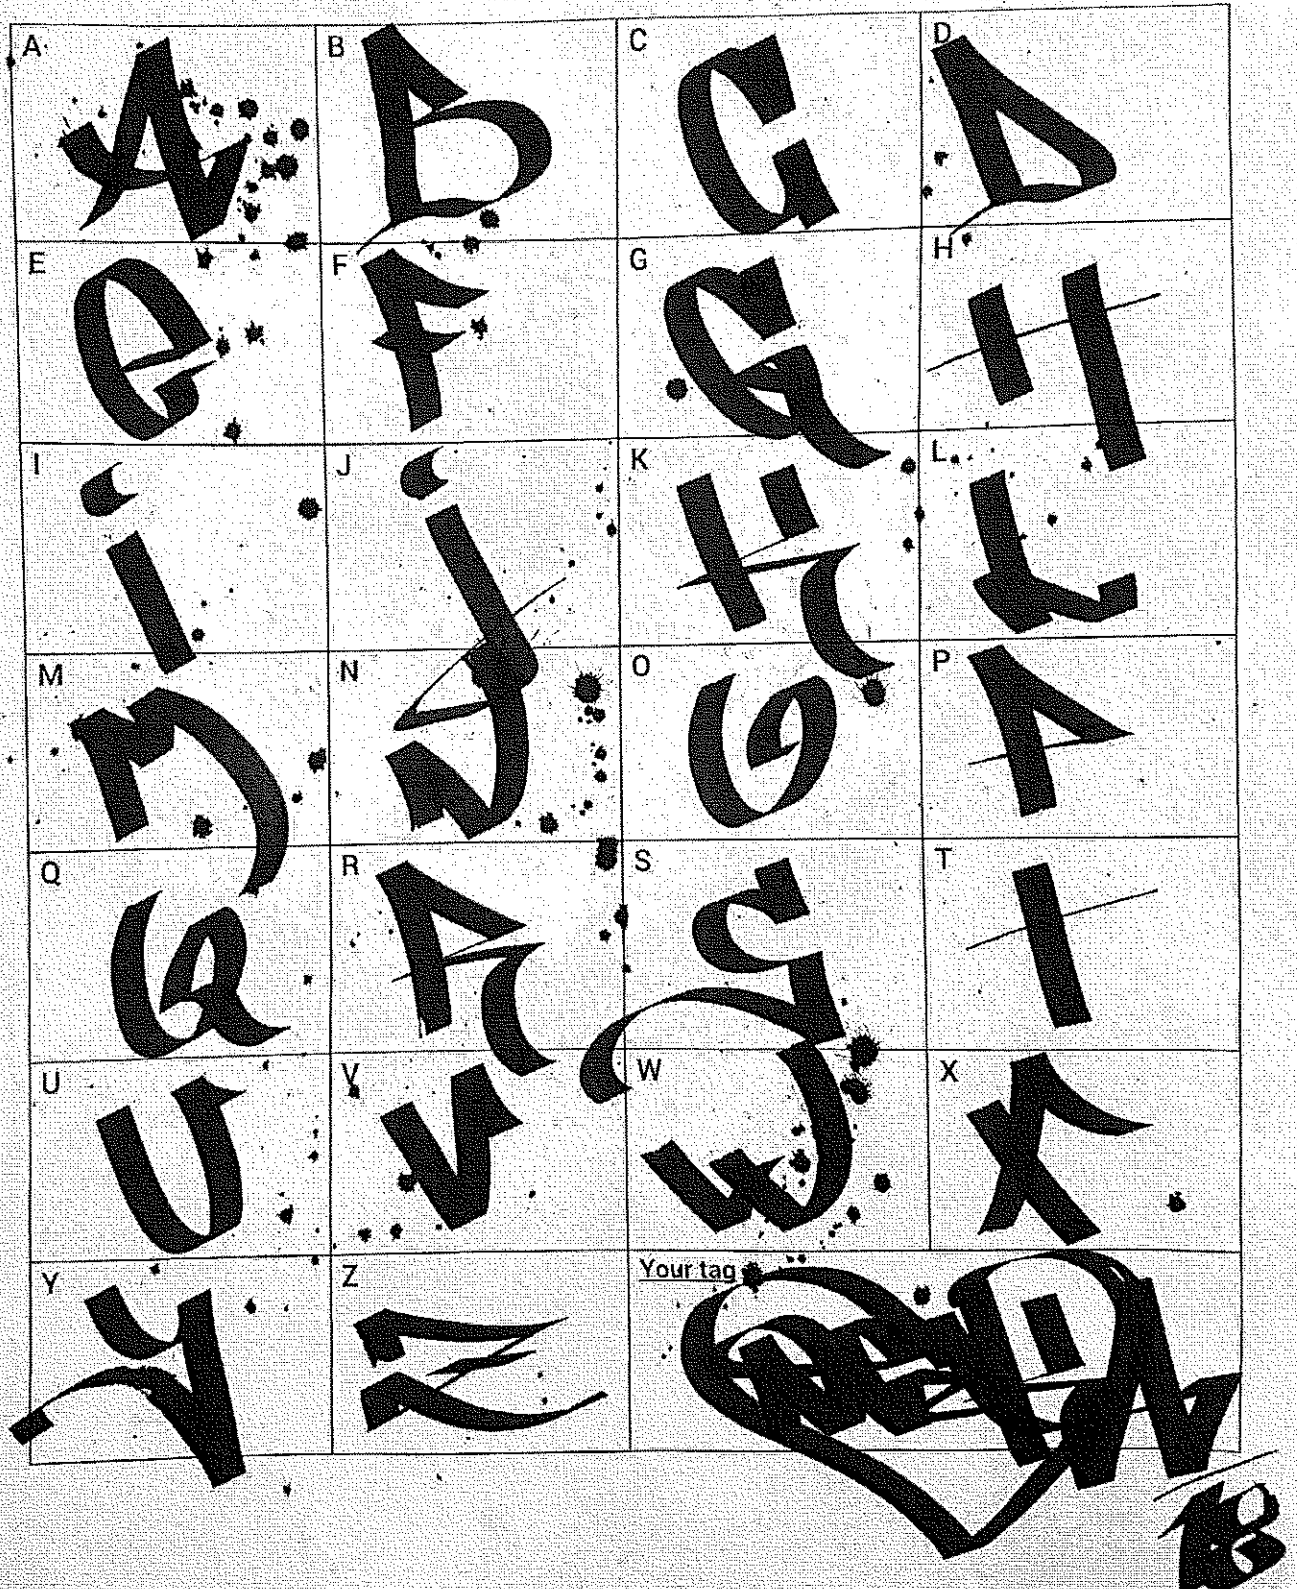 A A B B C C D D
E e F F G G H H
I i J j K K L L
M M N N O O P P
Q Q R R S S T T
U U V V W W X X
Y Y Z Z Your tag
18